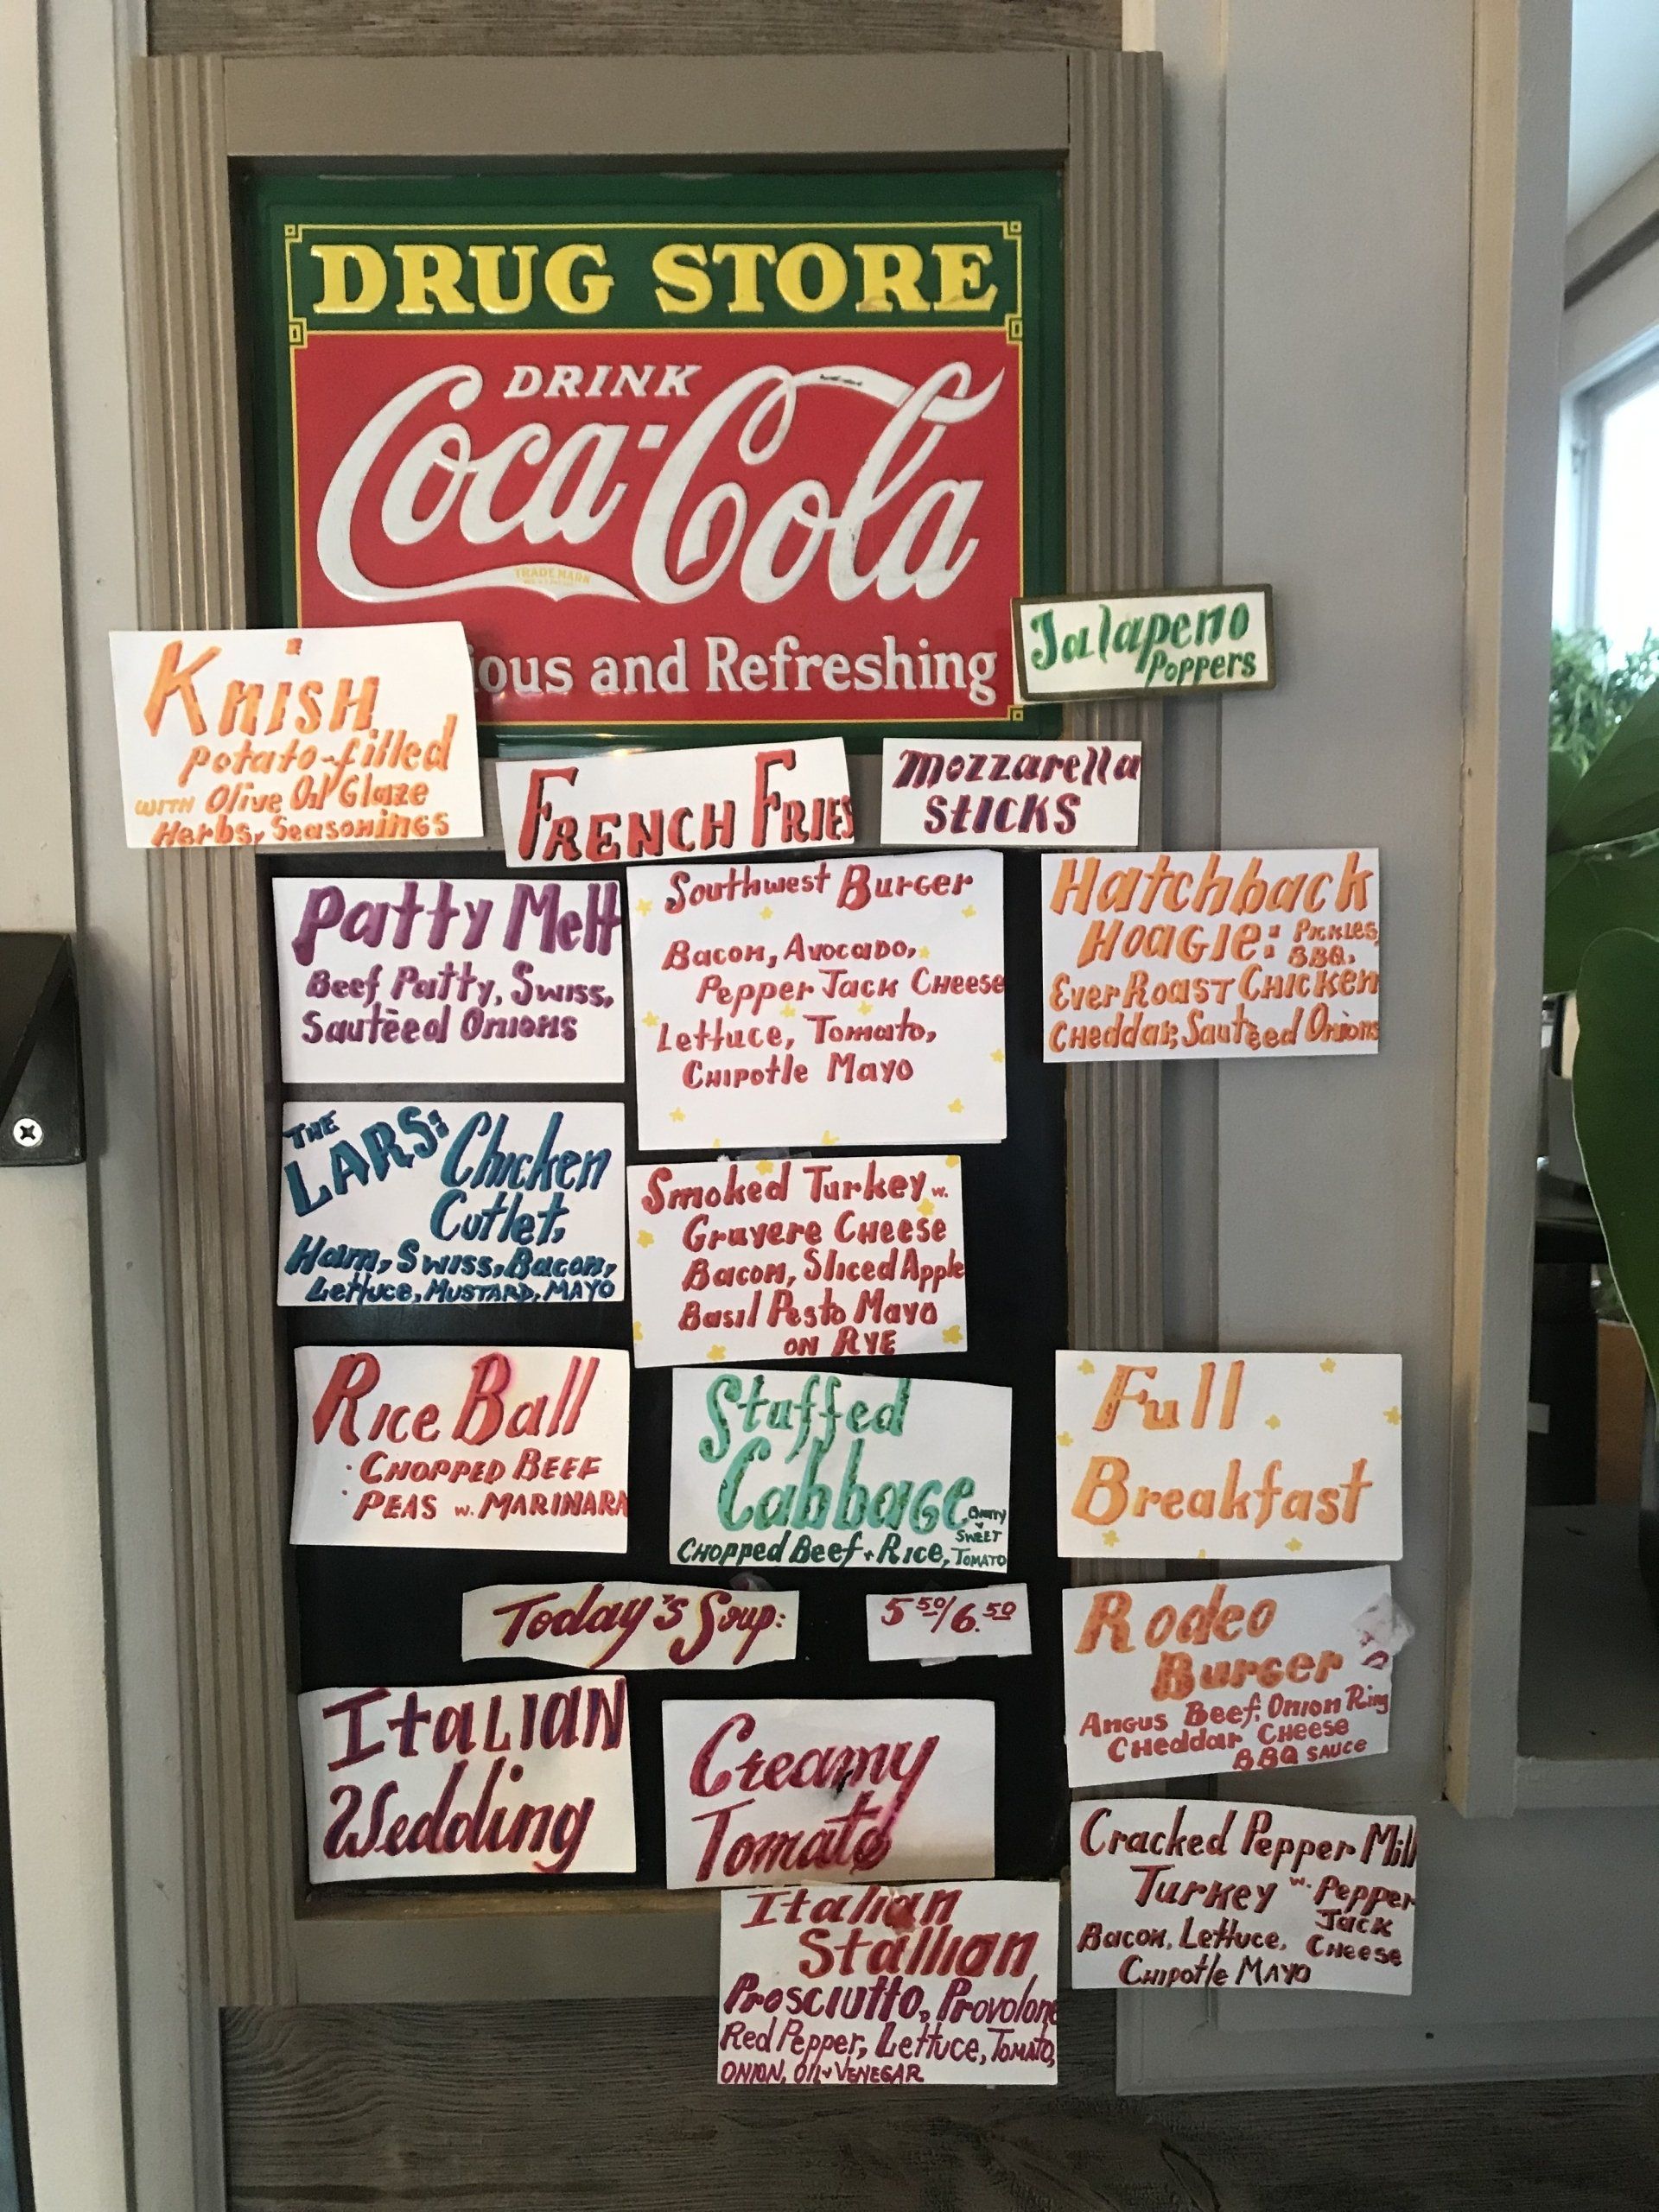 DRUG STORE
DRINK
Coca-Cola
TRADE MARK
ious and Refreshing
Jalapeno
Poppers
Knish
Potato-filled
WITH Olive Oil Glaze
Herbs, Seasonings
FRENCH FRIES
Mozzarella
STICKS
Patty Melt
Beef Patty, Swiss,
Sautéed Onions
Southwest Burger
Bacon, Avocado,
Pepper Jack Cheese
Lettuce, Tomato,
Chipotle Mayo
Hatchback
HOAGIE: PICKLES,
BBQ,
EverRoast Chicken
Cheddar, Sautéed Onions
THE
LARS: Chicken
Cutlet,
Ham, Swiss, Bacon,
Lettuce, MUSTARD, MAYO
Smoked Turkey w.
Gruyere Cheese
Bacon, Sliced Apple
Basil Pesto Mayo
ON RYE
Rice Ball
· CHOPPED BEEF
· PEAS w. MARINARA
Stuffed
Cabbage
SWEET
Chopped Beef + Rice, TOMATO
Full
Breakfast
Today's Soup:
5 50/6.50
Rodeo
Burger
Angus Beef, Onion Ring
Cheddar Cheese
BBQ SAUCE
ItaLIAN
Wedding
Creamy
Tomato
Cracked Pepper Mill
Turkey w. Pepper
Jack
Bacon, Lettuce, Cheese
Chipotle MAYO
Italian
Stallion
Prosciutto, Provolone
Red Pepper, Lettuce, Tomato,
ONION, Oil + VENEGAR